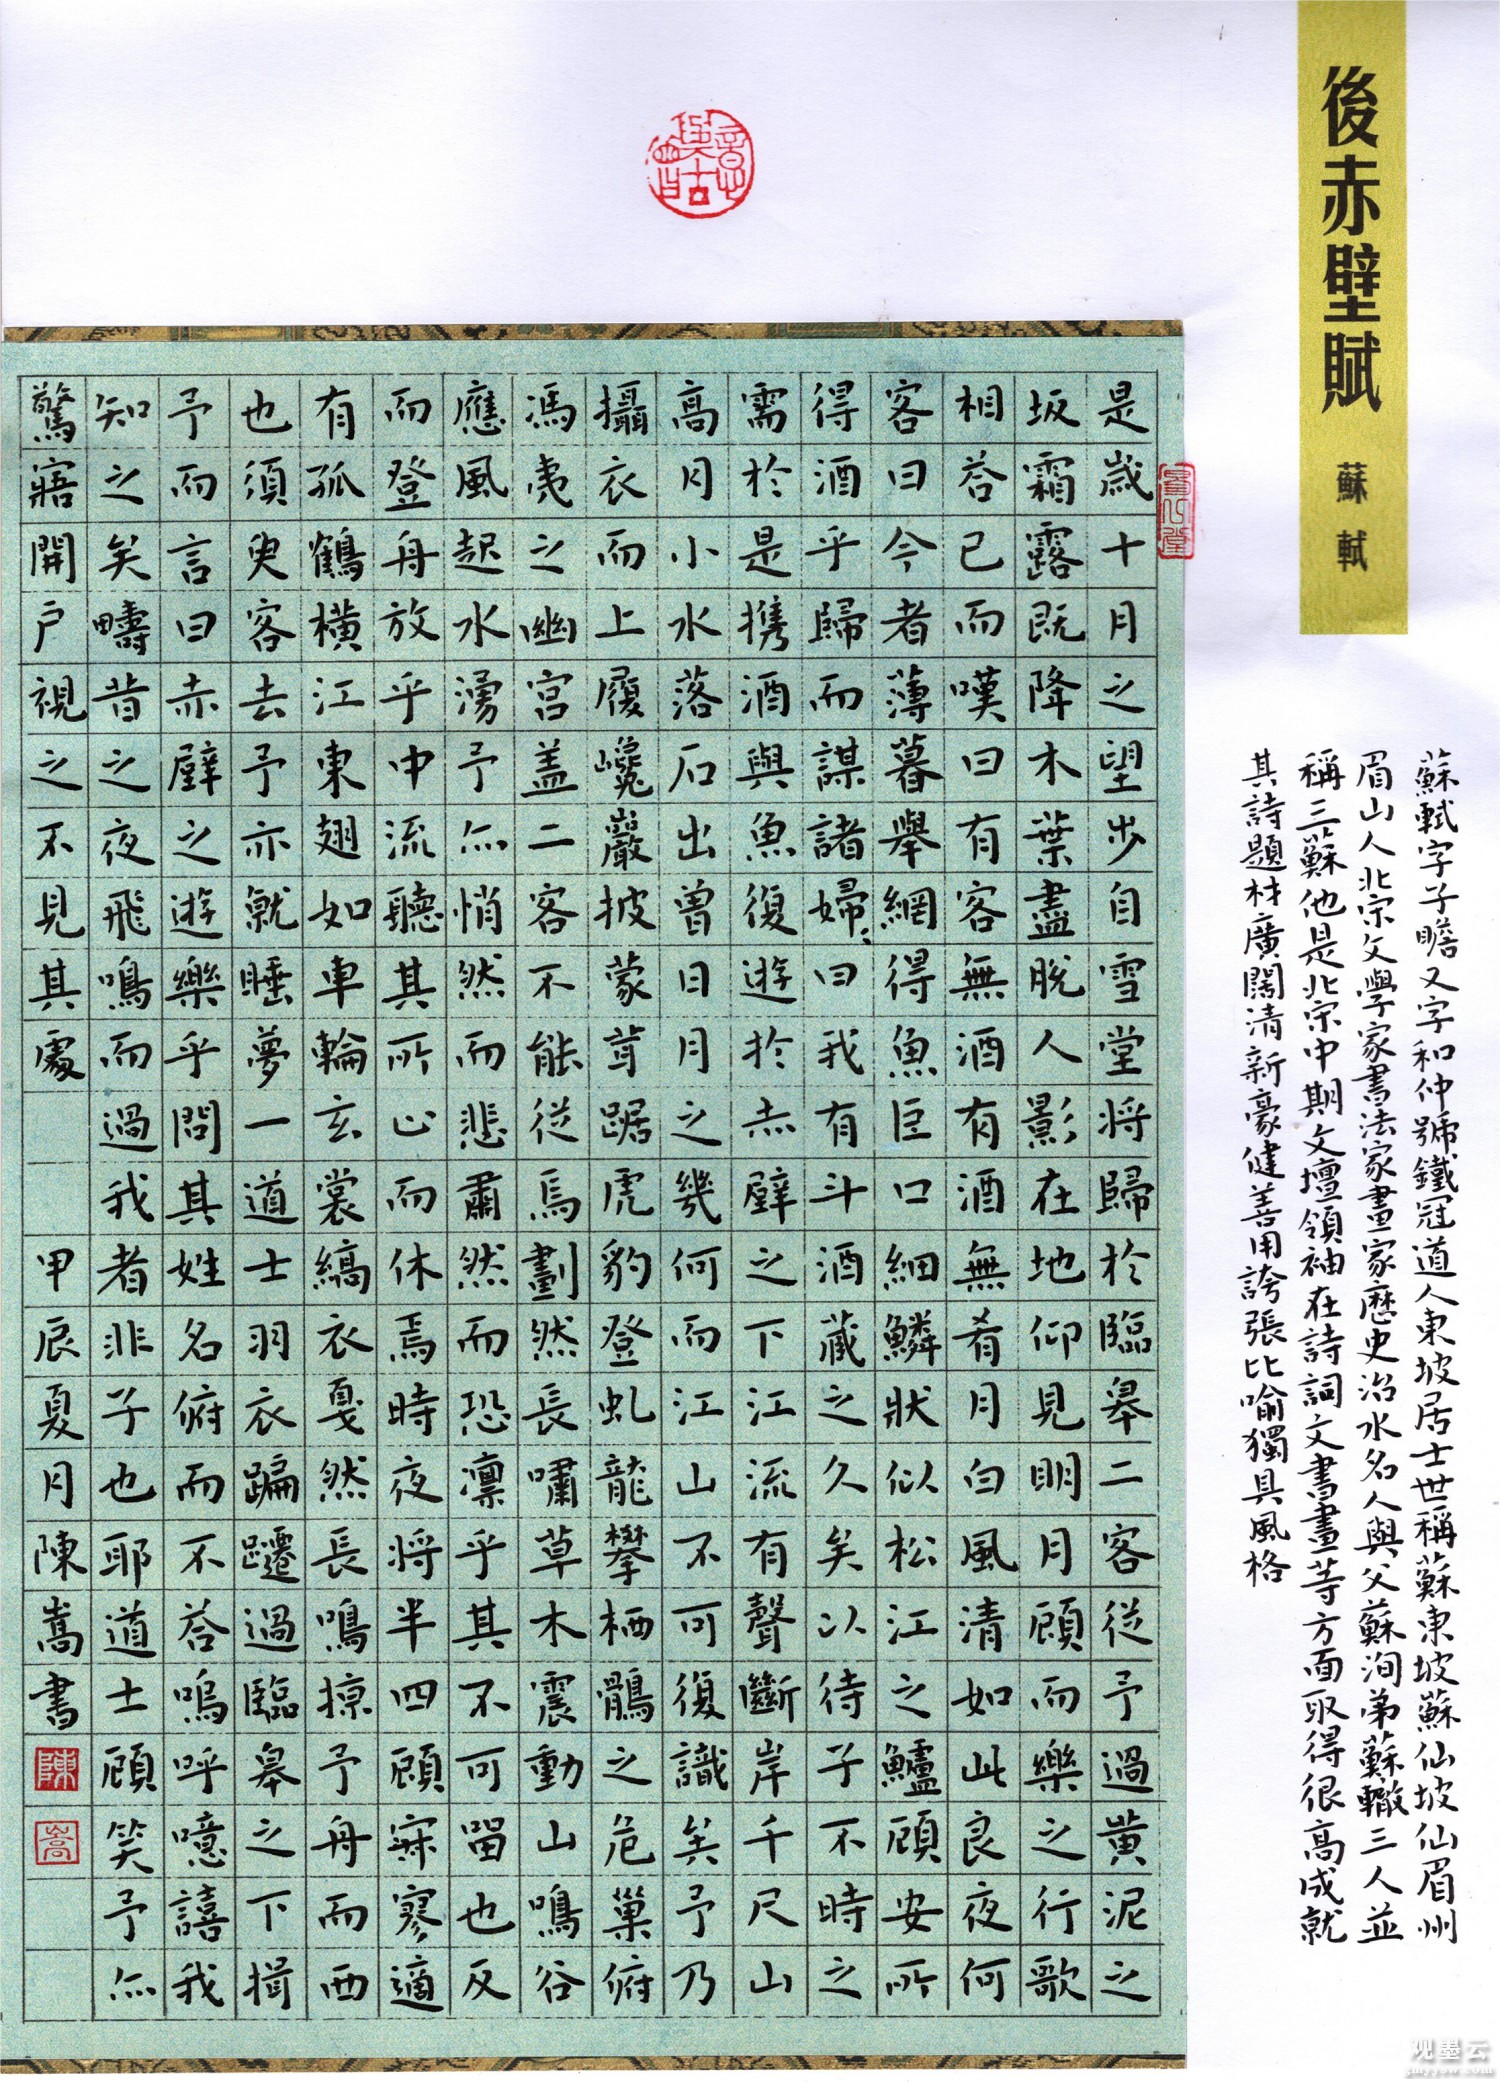 後赤壁賦 蘇軾
意與古會
是歲十月之望步自雪堂将歸於臨皋二客從予過黄泥之
坂霜露既降木葉盡脱人影在地仰見明月顧而樂之行歌
相荅已而嘆曰有客無酒有酒無肴月白風清如此良夜何
客曰今者薄暮舉網得魚巨口細鱗狀似松江之鱸顧安所
得酒乎歸而謀諸婦、曰我有斗酒藏之久矣以待子不時之
需於是携酒與魚復遊於赤壁之下江流有聲斷岸千尺山
高月小水落石出曾日月之幾何而江山不可復識矣予乃
攝衣而上履巉巖披蒙茸踞虎豹登虬龍攀栖鶻之危巢俯
馮夷之幽宫盖二客不能從焉劃然長嘯草木震動山鳴谷
應風起水湧予亦悄然而悲肅然而恐凛乎其不可留也反
而登舟放乎中流聽其所止而休焉時夜将半四顧寂寥適
有孤鶴横江東翅如車輪玄裳縞衣戛然長鳴掠予舟而西
也須臾客去予亦就睡夢一道士羽衣蹁躚過臨皋之下揖
予而言曰赤壁之遊樂乎問其姓名俯而不荅嗚呼噫嘻我
知之矣疇昔之夜飛鳴而過我者非子也耶道士顧笑予亦
驚寤開户視之不見其處 甲辰夏月陳嵩書 陳 嵩
蘇軾字子瞻又字和仲號鐵冠道人東坡居士世稱蘇東坡蘇仙坡仙眉州
眉山人北宋文學家書法家畫家歷史治水名人與父蘇洵弟蘇轍三人並
稱三蘇他是北宋中期文壇領袖在詩詞文書畫等方面取得很高成就
其詩題材廣闊清新豪健善用誇張比喻獨具風格
观墨云
gmyyow.com